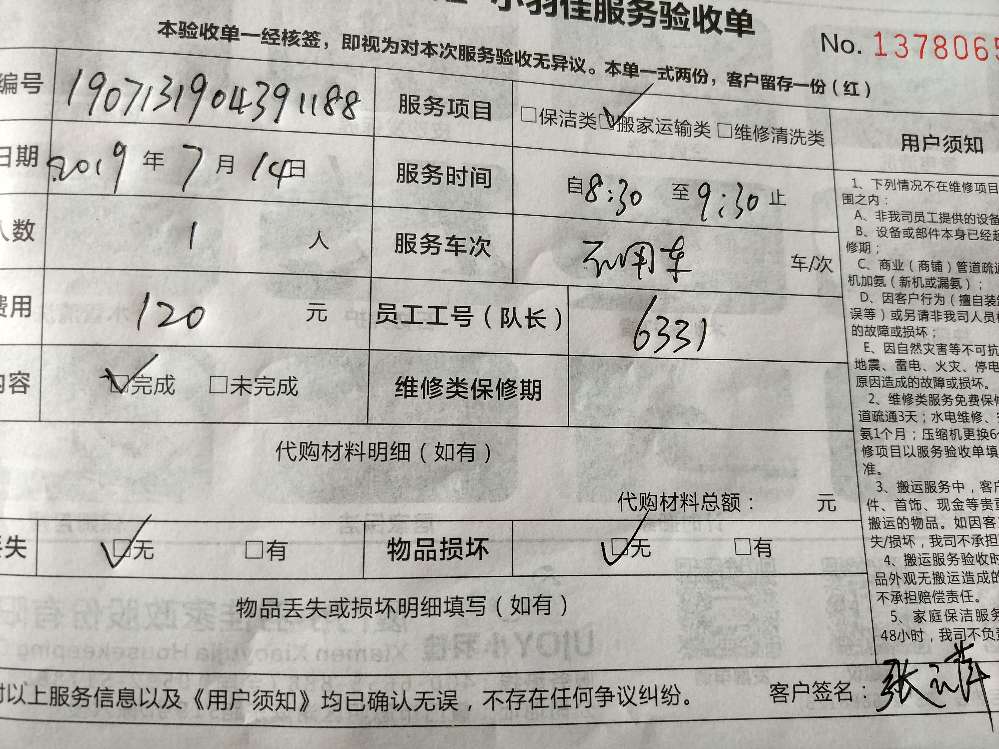 小羽佳服务验收单
No. 1378065
本验收单一经核签，即视为对本次服务验收无异议。本单一式两份，客户留存一份（红）
编号 1907131904391188 服务项目 □保洁类 ☑搬家运输类 □维修清洗类
用户须知
日期 2019年7月14日 服务时间 自8:30至9:30止
人数 1人 服务车次 不用车 车/次
费用 120元 员工工号（队长） 6331
内容 ☑完成 □未完成 维修类保修期
代购材料明细（如有）
代购材料总额： 元
丢失 ☑无 □有 物品损坏 ☑无 □有
物品丢失或损坏明细填写（如有）
对以上服务信息以及《用户须知》均已确认无误，不存在任何争议纠纷。
客户签名：张
1、下列情况不在维修项目
围之内：
A、非我司员工提供的设备
B、设备或部件本身已经超
修期；
C、商业（商铺）管道疏通
机加氨（新机或漏氨）；
D、因客户行为（擅自装
误等）或另请非我司人员
的故障或损坏；
E、因自然灾害等不可抗
地震、雷电、火灾、停电
原因造成的故障或损坏。
2、维修类服务免费保修
道疏通3天；水电维修、
氨1个月；压缩机更换6
修项目以服务验收单填
准。
3、搬运服务中，客户
件、首饰、现金等贵重
搬运的物品。如因客
失/损坏，我司不承担
4、搬运服务验收时
品外观无搬运造成的
不承担赔偿责任。
5、家庭保洁服务
48小时，我司不负责